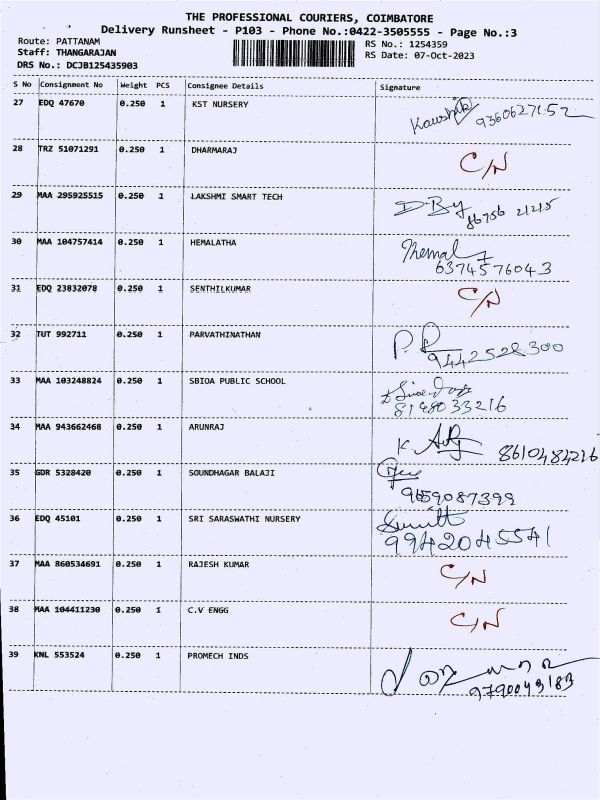 THE PROFESSIONAL COURIERS, COIMBATORE
Delivery Runsheet - P103 - Phone No.:0422-3505555 - Page No.:3
Route: PATTANAM
RS No.: 1254359
Staff: THANGARAJAN
RS Date: 07-Oct-2023
DRS No.: DCJB125435903
S No Consignment No Weight PCS Consignee Details Signature
27 EDQ 47670 0.250 1 KST NURSERY Kaushik
28 TRZ 51071291 0.250 1 DHARMARAJ C/N
29 MAA 295925515 0.250 1 LAKSHMI SMART TECH 86756 21215
30 MAA 104757414 0.250 1 HEMALATHA 6374576043
31 EDQ 23832078 0.250 1 SENTHILKUMAR C/N
32 TUT 992711 0.250 1 PARVATHINATHAN 9442528300
33 MAA 103248824 0.250 1 SBIOA PUBLIC SCHOOL 8148033216
34 MAA 943662468 0.250 1 ARUNRAJ K 8610484216
35 GDR 5328420 0.250 1 SOUNDHAGAR BALAJI 9659087399
36 EDQ 45101 0.250 1 SRI SARASWATHI NURSERY 9942045541
37 MAA 860534691 0.250 1 RAJESH KUMAR C/N
38 MAA 104411230 0.250 1 C.V ENGG C/N
39 KNL 553524 0.250 1 PROMECH INDS